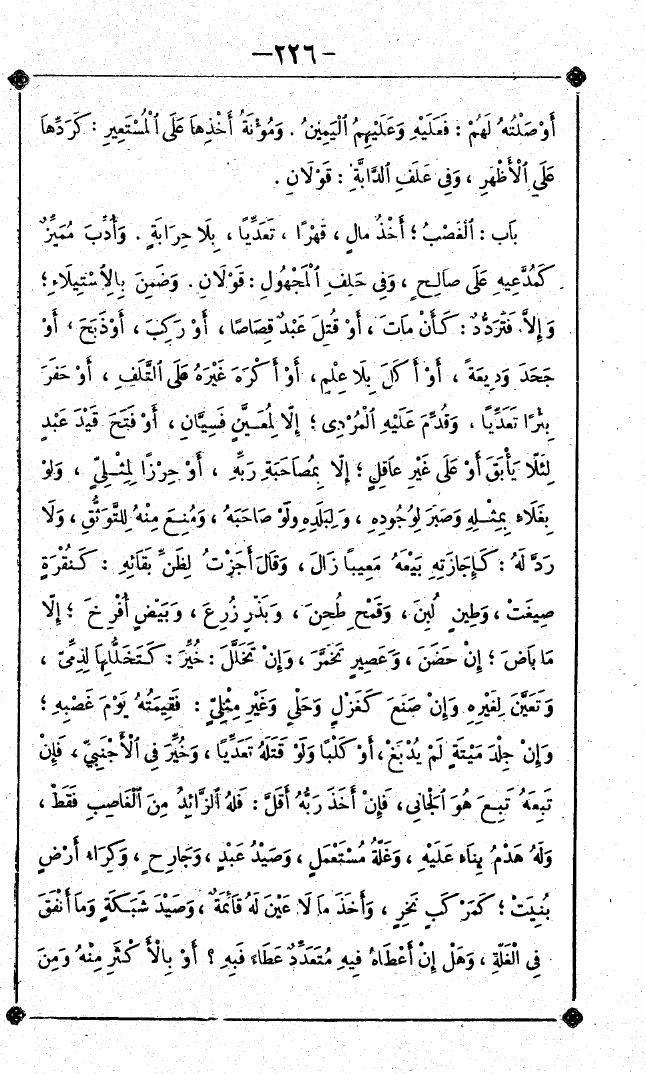 —٢٢٦—
أَوْصَلْتُهُ لَهُمْ : فَعَلَيْهِ وَعَلَيْهِمُ الْيَمِينُ . وَمُؤْنَةُ أَخْذِهَا عَلَى الْمُسْتَعِيرِ : كَرَدِّهَا
عَلَى الْأَظْهَرِ ، وَفِى عَلَفِ الدَّابَّةِ : قَوْلَانِ .
بَاب : الْغَصْبُ ؛ أَخْذُ مَالٍ ، قَهْرًا ، تَعَدِّيًا ، بِلَا حِرَابَةٍ . وَأُدِّبَ مُمَيِّزٌ
كَمُدَّعِيهِ عَلَى صَالِحٍ ، وَفِى حَلِفِ الْمَجْهُولِ : قَوْلَانِ . وَضَمِنَ بِالِاسْتِيلَاءِ ؛
وَإِلَّا فَتَرَدُّدٌ : كَأَنْ مَاتَ ، أَوْ قُتِلَ عَبْدٌ قِصَاصًا ، أَوْ رَكِبَ ، أَوْ ذَبَحَ ، أَوْ
جَحَدَ وَدِيعَةً ، أَوْ أَكَلَ بِلَا عِلْمٍ ، أَوْ أَكْرَهَ غَيْرَهُ عَلَى التَّلَفِ ، أَوْ حَفَرَ
بِئْرًا تَعَدِّيًا ، وَقُدِّمَ عَلَيْهِ الْمُرْدِى ؛ إِلَّا لِمُعَيَّنٍ فَسِيَّانِ ، أَوْ فَتَحَ قَيْدَ عَبْدٍ
لِئَلَّا يَأْبَقَ أَوْ عَلَى غَيْرِ عَاقِلٍ ؛ إِلَّا بِمُصَاحَبَةِ رَبِّهِ ، أَوْ حِرْزًا لِمِثْلِىٍّ ، وَلَوْ
بِغَلَاءٍ بِمِثْلِهِ وَصَبَرَ لِوُجُودِهِ ، وَلِبَلَدِهِ وَلَوْ صَاحَبَهُ ، وَمُنِعَ مِنْهُ لِلتَّوَثُّقِ ، وَلَا
رَدَّ لَهُ : كَإِجَازَتِهِ بَيْعَهُ مَعِيبًا زَالَ ، وَقَالَ أَجَزْتُ لِظَنِّ بَقَائِهِ : كَنُقْرَةٍ
صِيغَتْ ، وَطِينٍ لُبِنَ ، وَقَمْحٍ طُحِنَ ، وَبَذْرٍ زُرِعَ ، وَبَيْضٍ أُفْرِخَ ؛ إِلَّا
مَا بَاضَ ؛ إِنْ حَضَنَ ، وَعَصِيرٍ تَخَمَّرَ ، وَإِنْ تَخَلَّلَ : خُيِّرَ : كَتَخَلُّلِهَا لِذِمِّىٍّ ،
وَتَعَيَّنَ لِغَيْرِهِ وَإِنْ صَنَعَ كَغَزْلٍ وَحَلْىٍ وَغَيْرِ مِثْلِىٍّ : فَقِيمَتُهُ يَوْمَ غَصْبِهِ ؛
وَإِنْ جِلْدَ مَيْتَةٍ لَمْ يُدْبَغْ ، أَوْ كَلْبًا وَلَوْ قَتَلَهُ تَعَدِّيًا ، وَخُيِّرَ فِى الْأَجْنَبِىِّ ، فَإِنْ
تَبِعَهُ تَبِعَ هُوَ الْجَانِى ، فَإِنْ أَخَذَ رَبُّهُ أَقَلَّ : فَلَهُ الزَّائِدُ مِنَ الْغَاصِبِ فَقَطْ ،
وَلَهُ هَدْمُ بِنَاءٍ عَلَيْهِ ، وَغَلَّةُ مُسْتَعْمَلٍ ، وَصَيْدُ عَبْدٍ ، وَجَارِحٍ ، وَكِرَاءُ أَرْضٍ
بُنِيَتْ ؛ كَمَرْكَبٍ نَخِرٍ ، وَأَخَذَ مَا لَا عَيْنَ لَهُ قَائِمَةٌ ، وَصَيْدَ شَبَكَةٍ وَمَا أَنْفَقَ
فِى الْغَلَّةِ ، وَهَلْ إِنْ أَعْطَاهُ فِيهِ مُتَعَدِّدٌ عَطَاءً فَبِهِ ؟ أَوْ بِالْأَكْثَرِ مِنْهُ وَمِنَ